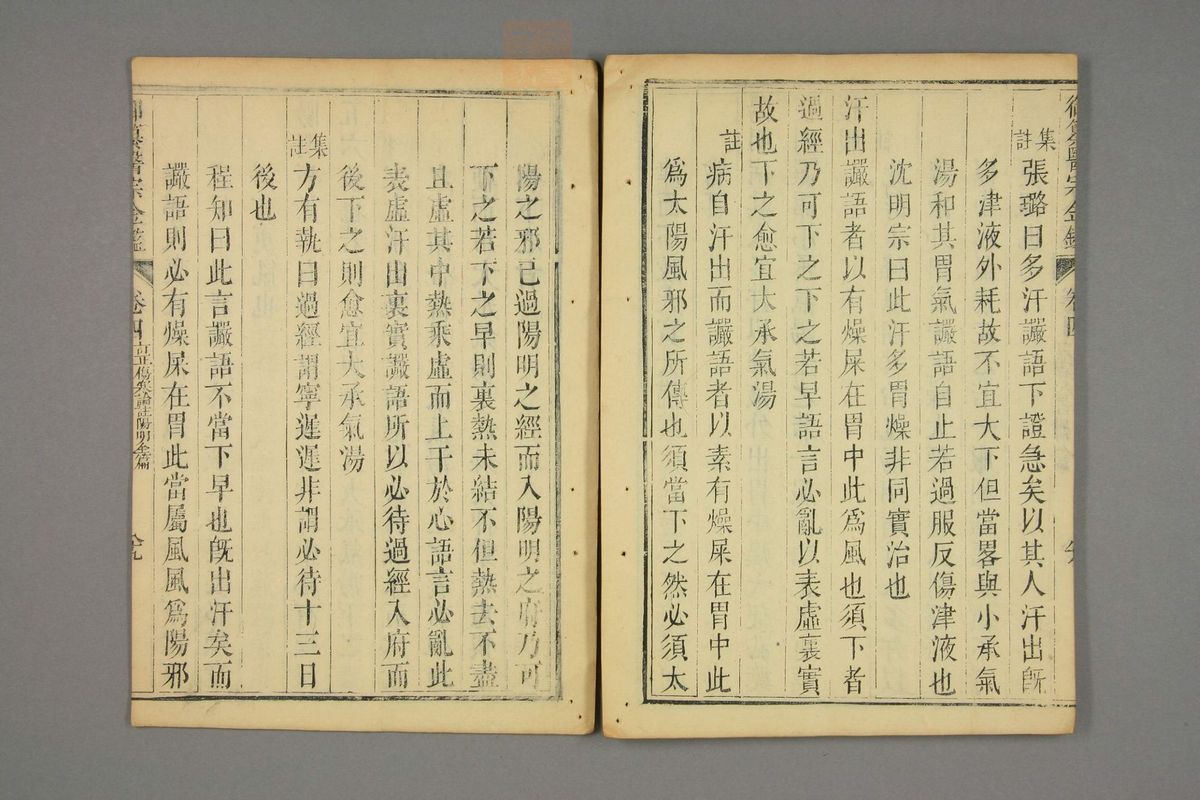 御纂醫宗金鑑
集註張璐曰多汗讝語下證急矣以其人汗出旣
多津液外耗故不宜大下但當畧與小承氣
湯和其胃氣讝語自止若過服反傷津液也
沈明宗曰此汗多胃燥非同實治也
汗出讝語者以有燥屎在胃中此爲風也須下者
過經乃可下之下之若早語言必亂以表虛裏實
故也下之愈宜大承氣湯
註病自汗出而讝語者以素有燥屎在胃中此
爲太陽風邪之所傳也須當下之然必須太
陽之邪已過陽明之經而入陽明之府乃可
下之若下之早則裏熱未結不但熱去不盡
且虛其中熱乘虛而上干於心語言必亂此
表虛汗由裏實讝語所以必待過經入府而
後下之則愈宜大承氣湯
集註方有執曰過經謂寧遲遲非謂必待十三日
後也
程知曰此言讝語不當下早也旣出汗矣而
讝語則必有燥屎在胃此當屬風風爲陽邪
御纂醫宗金鑑 卷四 訂正傷寒論註陽明全篇